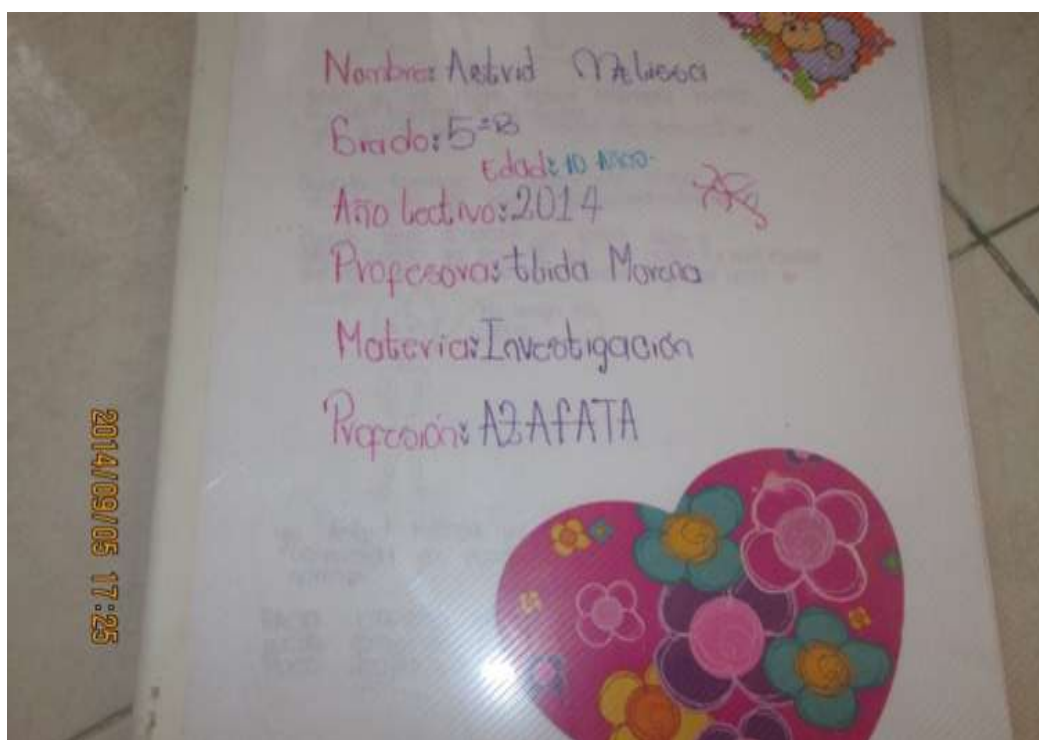 Nombre: Astrid Melissa
Grado: 5=B
Edad: 10 Años
Año lectivo: 2014
Profesora: Elvida Morena
Materia: Investigación
Profesión: AZAFATA
2014/09/05 17:25